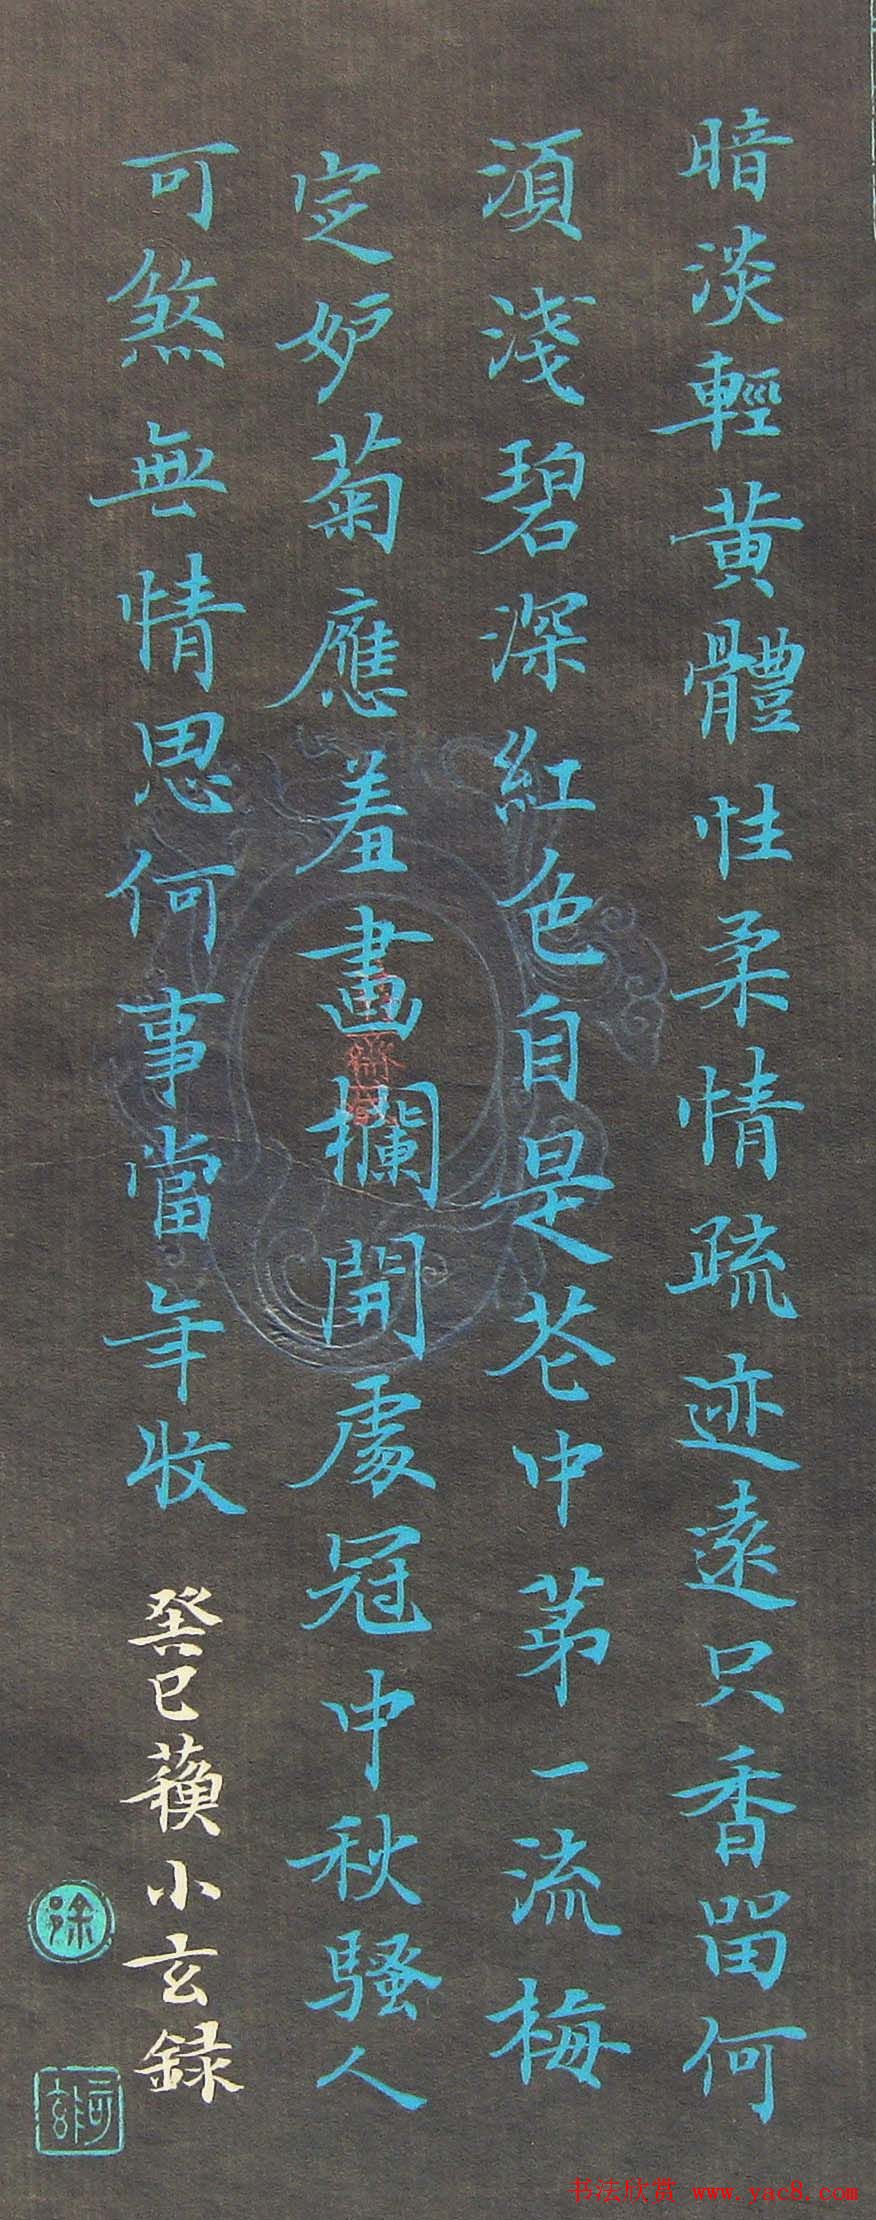 暗淡輕黄體性柔情疏迹遠只香留何
須淺碧深紅色自是花中第一流梅
定妒菊應羞畫欄開處冠中秋騷人
可煞無情思何事當年收
癸巳蘋小玄録
徐
书法欣赏 www.yac8.com